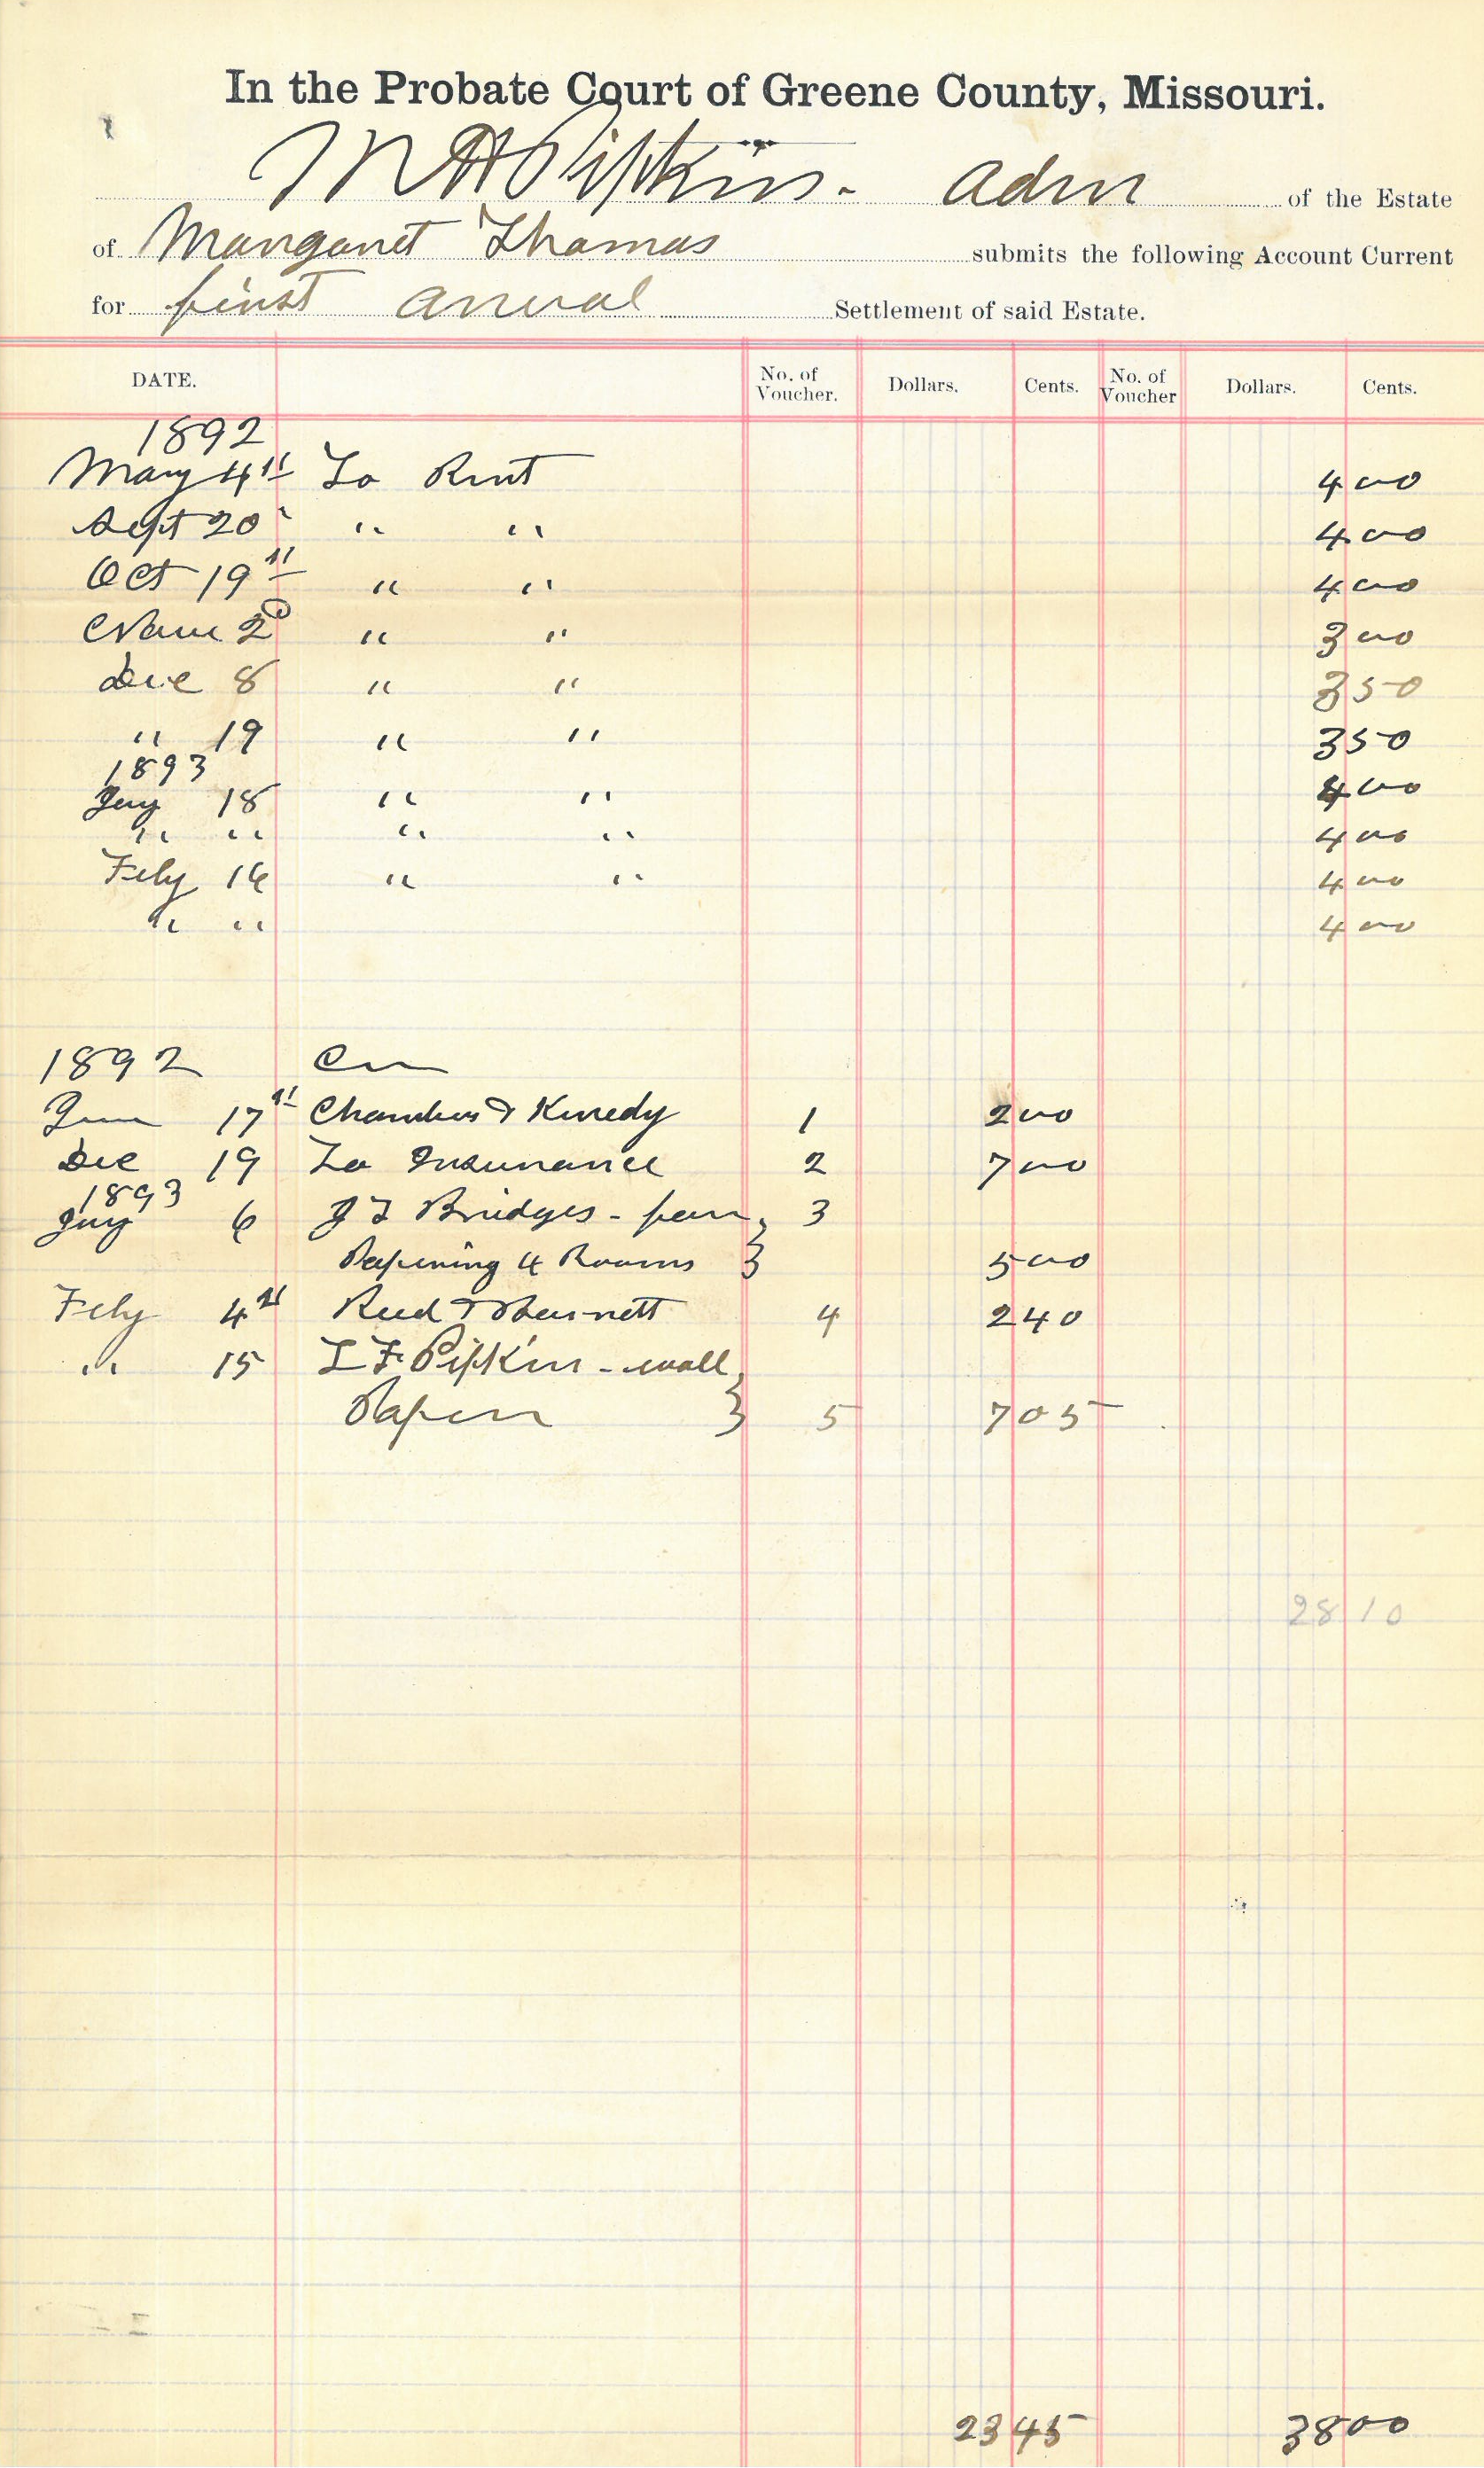 In the Probate Court of Greene County, Missouri.
M A Pipkin. Adm of the Estate
of Margaret Thomas submits the following Account Current
for first anual Settlement of said Estate.
DATE. No. of Voucher. Dollars. Cents. No. of Voucher Dollars. Cents.
1892
May 4th To Rent 4 00
Sept 20 " " 4 00
Oct 19th " " 4 00
Nov 2d " " 3 00
Dec 8 " " 3 50
" 19 " " 3 50
1893
Jny 18 " " 4 00
" " " " 4 00
Feby 16 " " 4 00
" " 4 00
1892 Cr
17th Chambers & Kenedy 1 2 00
Dec 19 To Insurance 2 7 00
1893
Jny 6 J T Bridges - for 3
Papering 4 Rooms 5 00
Feby 4th Reed & Barnett 4 2 40
" 15 L F Pipkin - wall
Paper 5 7 05
28 10
23 45 38 00